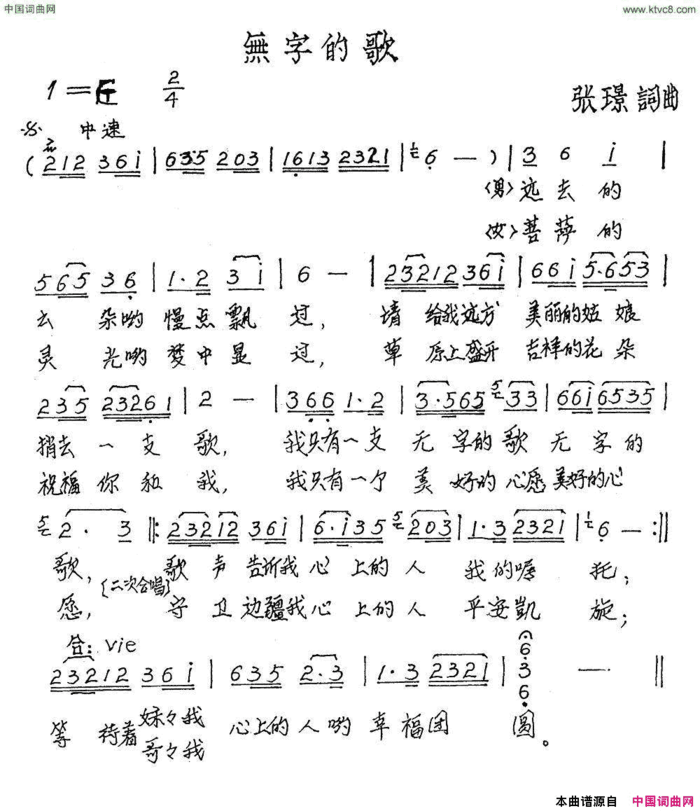 中国词曲网
www.ktvc8.com
無字的歌
1=E 2/4
张璟詞曲
中速
(212 361|6035 203|1613 2321|6 —)|3 6 i|
〈男〉远去的
〈女〉菩萨的
565 36|1·2 3i|6 —|23212 36i|66i 5·653|
云朵哟慢点飘过，请给我远方美丽的姑娘
灵光哟梦中显过，草原上盛开吉祥的花朵
235 23261|2 —|366 1·2|3·565 33|66i 6535|
捎去一支歌，我只有一支无字的歌无字的
祝福你和我，我只有一个美好的心愿美好的心
2· 3‖:23212 36i|6·i35 203|1·3 2321|6 —:‖
歌，歌声告诉我心上的人我的嘱托；
〔二次合唱〕
愿，守卫边疆我心上的人平安凱旋；
合：vie
23212 36i|635 2·3|1·3 232i|6 3 6 —‖
等待着妹々我心上的人哟幸福团圆。
哥々我
本曲谱源自 中国词曲网